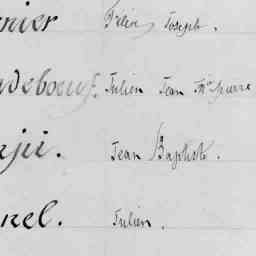 nier Félix Joseph.
udeboeuf. Julien Jean Mie pierre
jii. Jean Baptiste.
nel. Julien.